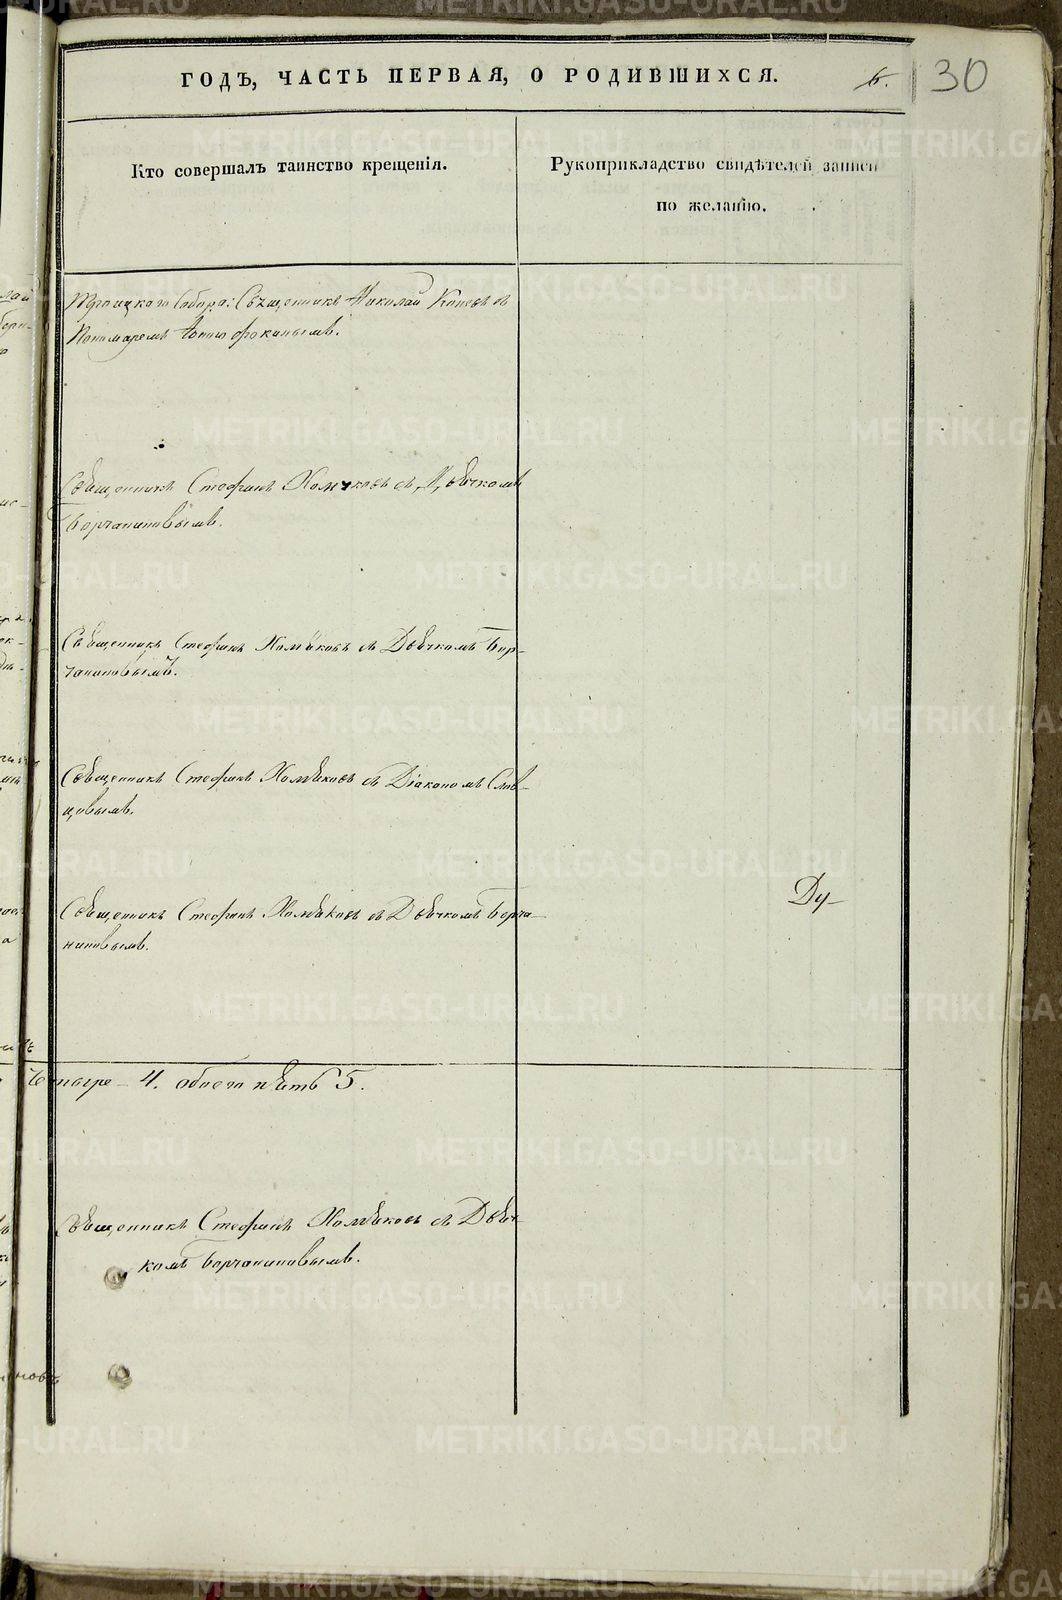 ГОДЪ, ЧАСТЬ ПЕРВАЯ, О РОДИВШИХСЯ.
6.
30
Кто совершалъ таинство крещенія.
Рукоприкладство свидѣтелей записи
по желанію.
Троицкаго Собора: Священникъ Николай Коневъ съ
Пономаремъ
Священникъ Стефанъ Хомяковъ съ Дьячкомъ
Борчаниновымъ.
Священникъ Стефанъ Хомяковъ съ Дьячкомъ Бор-
чаниновымъ.
Священникъ Стефанъ Хомяковъ съ Діакономъ Слов-
цовымъ.
Священникъ Стефанъ Хомяковъ съ Дьячкомъ Борча-
ниновымъ.
Ду-
Четыре - 4. обоего пять 5.
Священникъ Стефанъ Хомяковъ съ Дьяч-
комъ Борчаниновымъ.
METRIKI.GASO-URAL.RU